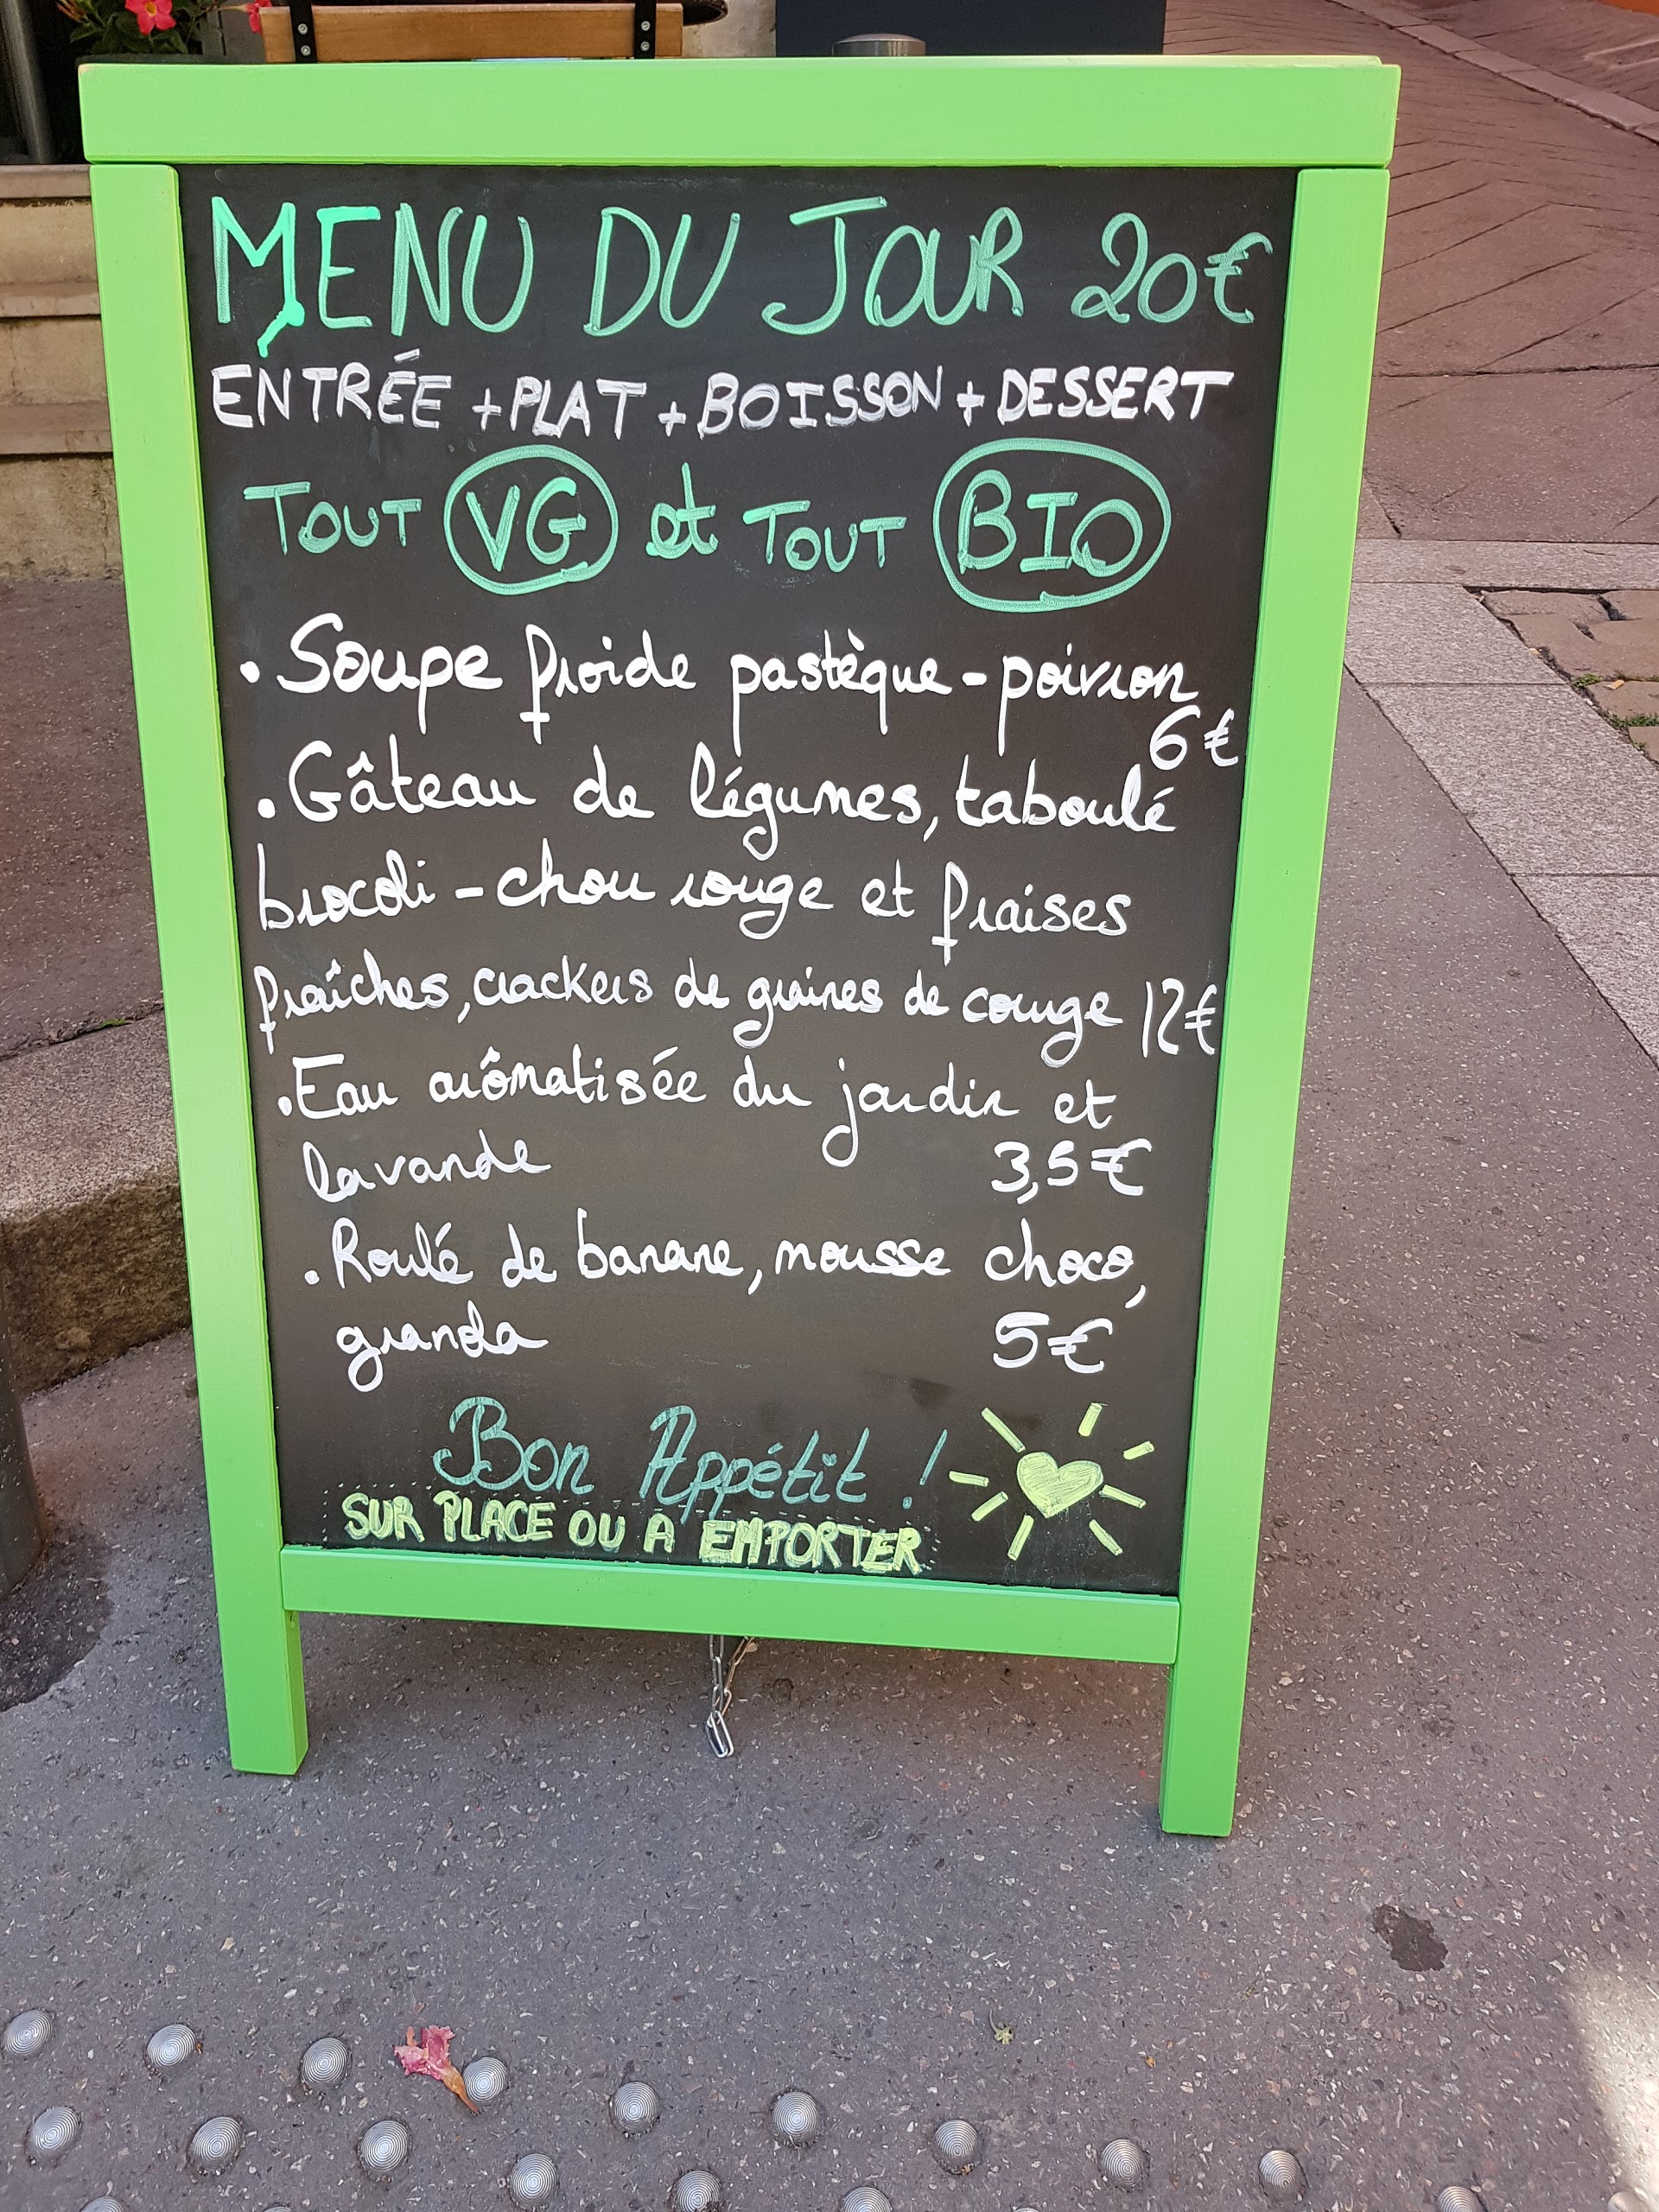 MENU DU JOUR 20€
ENTRÉE + PLAT + BOISSON + DESSERT
TOUT VG et TOUT BIO
. Soupe froide pastèque - poivron
6€
. Gâteau de légumes, taboulé
brocoli - chou rouge et fraises
fraîches, crackers de graines de courge 12€
. Eau arômatisée du jardin et
lavande 3,5€
. Roulé de banane, mousse choco,
granola 5€
Bon Appétit !
SUR PLACE OU A EMPORTER